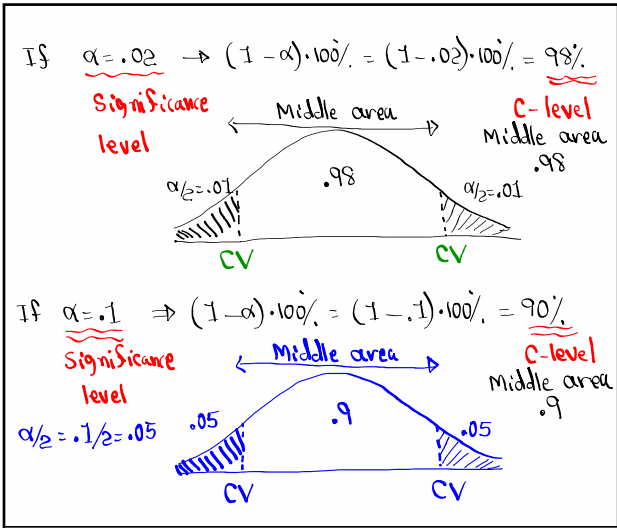 If α = .02 → (1 - α)·100% = (1 - .02)·100% = 98%
Significance level
C-level
Middle area
Middle area
.98
α/2 = .01
.98
α/2 = .01
CV
CV
If α = .1 ⇒ (1 - α)·100% = (1 - .1)·100% = 90%
Significance level
Middle area
C-level
Middle area
.9
α/2 = .1/2 = .05
.05
.9
.05
CV
CV